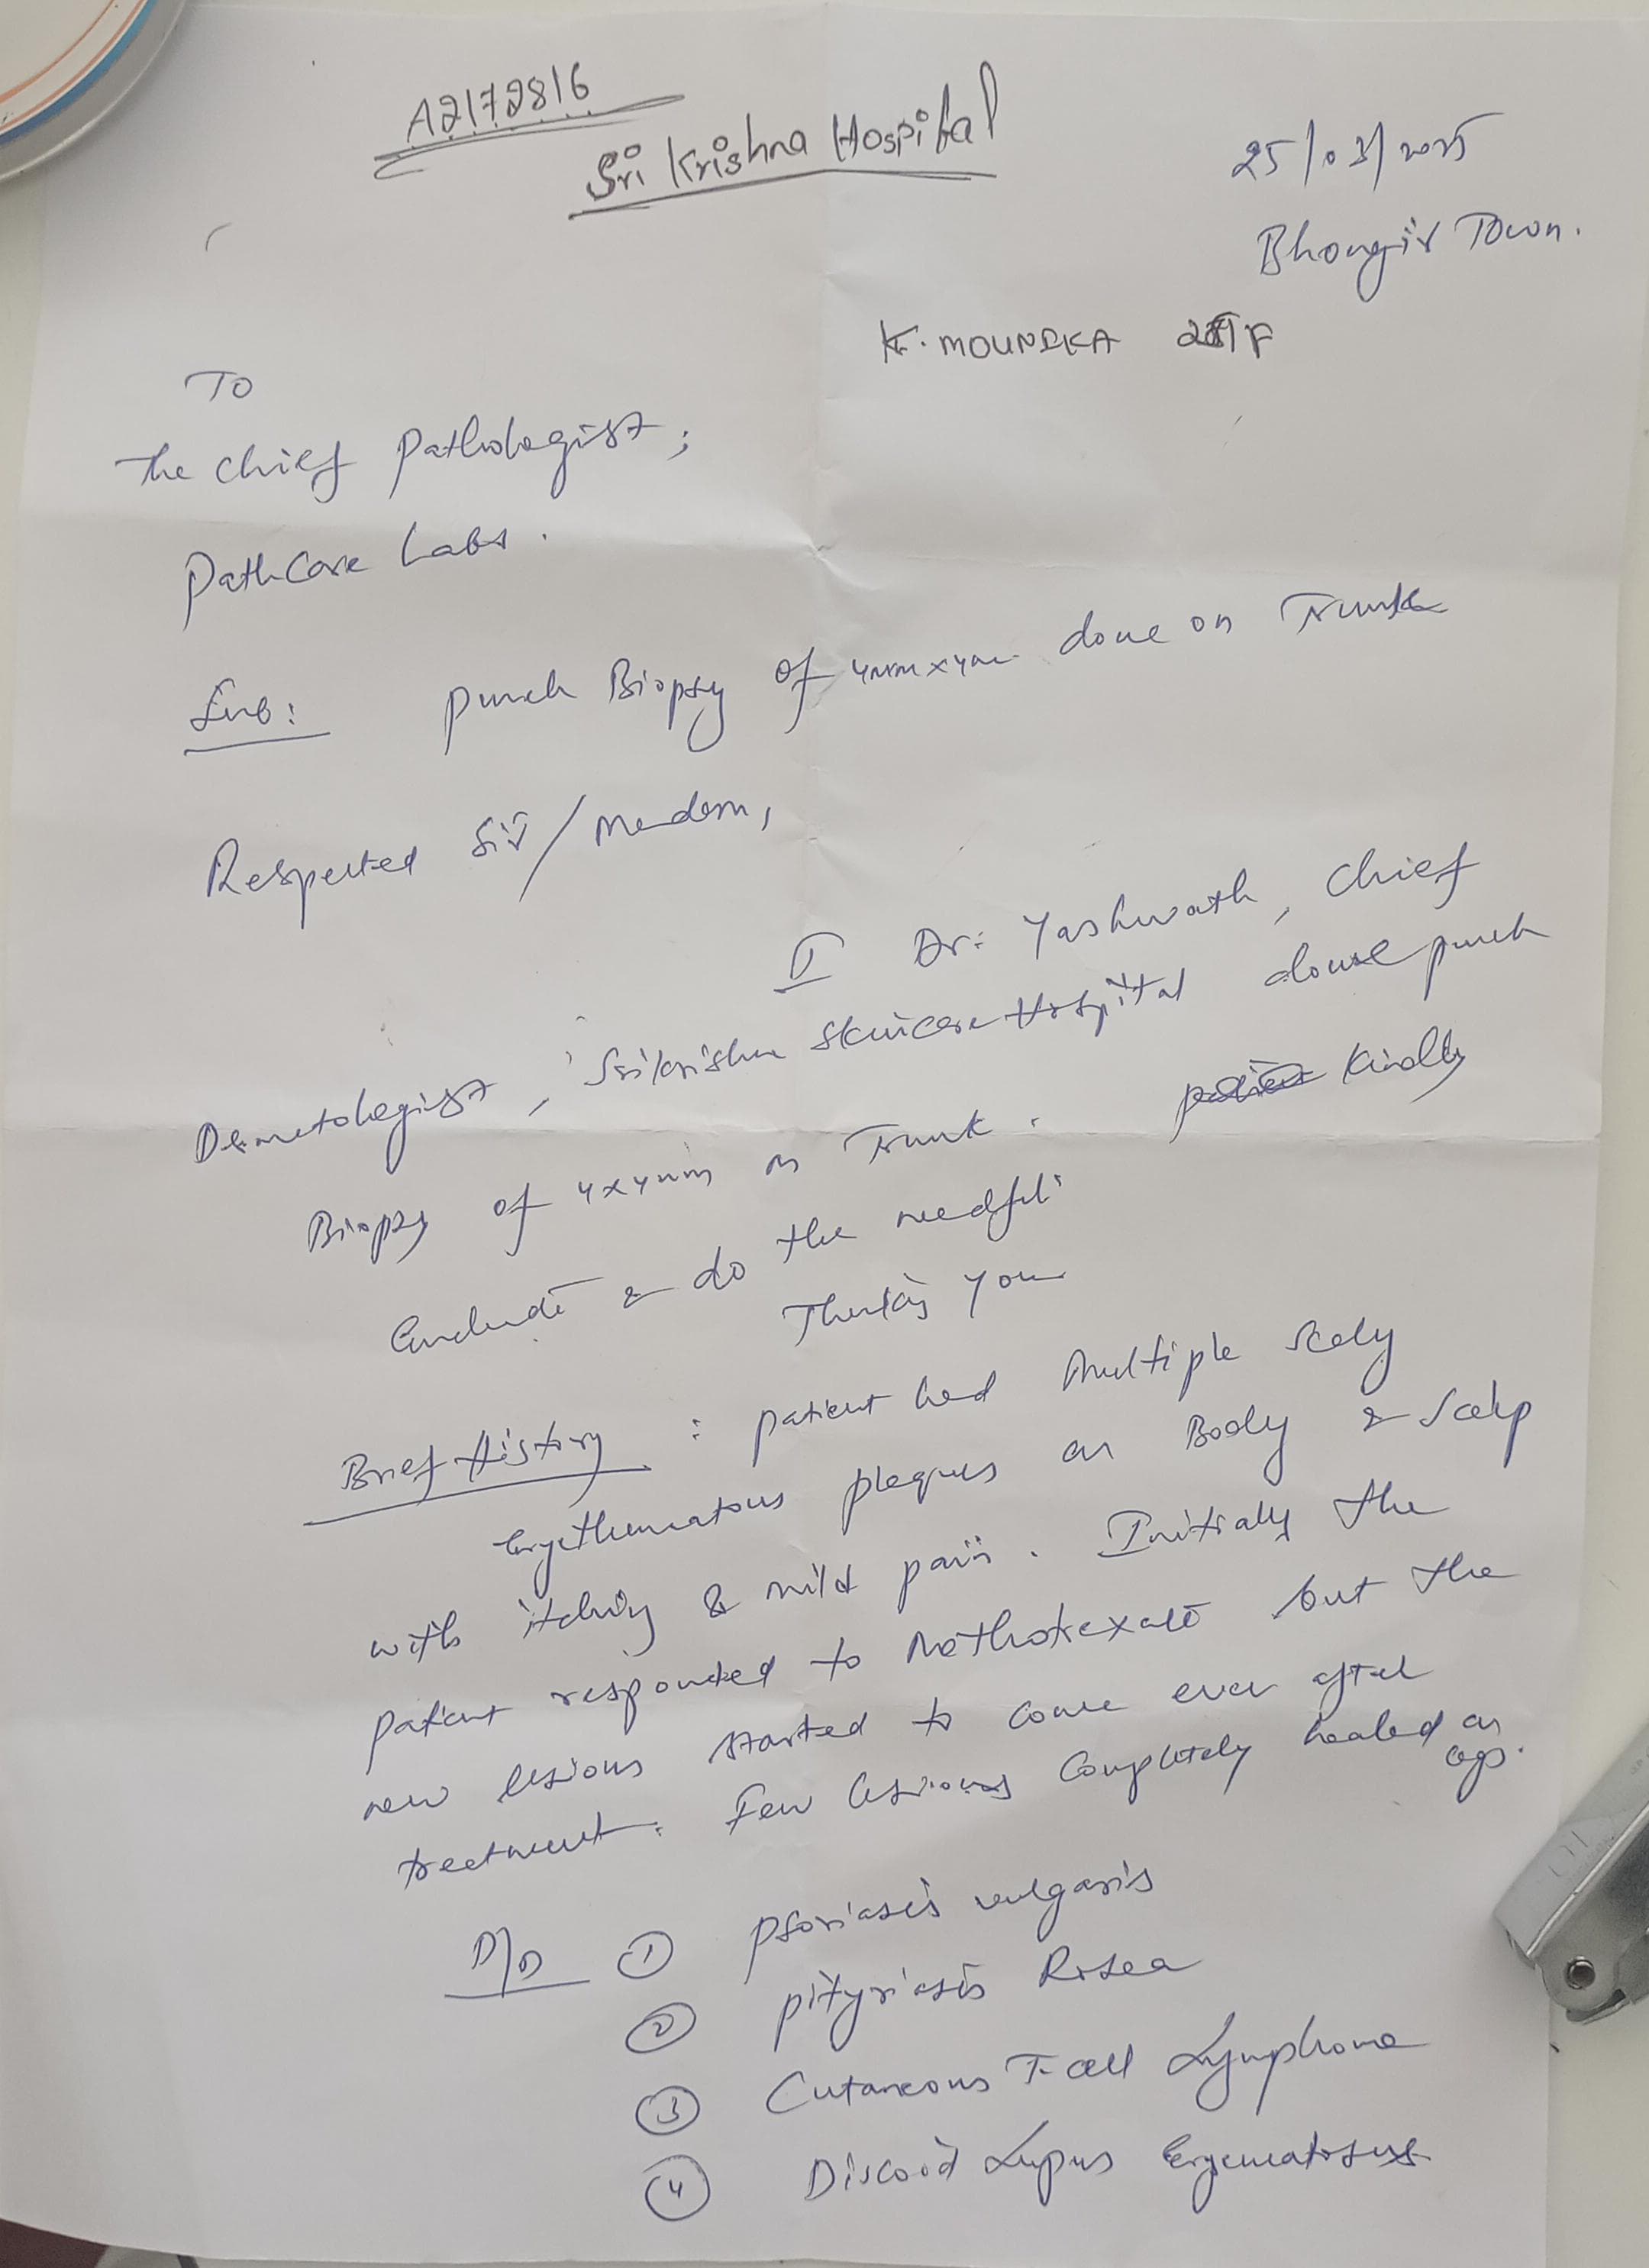 A2172816
Sri Krishna Hospital
25/03/2025
Bhongir Town.
K. MOUNIKA F
TO
The Chief Pathologist,
PathCare Labs.
Sub: Punch Biopsy of 4mmx4mm done on Trunk
Respected Sir/Madam,
I Dr. Yashwath, Chief
Dermatologist, Srikrishna Skincare Hospital done punch
Biopsy of 4x4mm on Trunk. Kindly
Evaluate & do the needful.
Thanking You
Brief History : patient had Multiple scaly
Erythematous plaques on Body & Scalp
with itching & mild pain. Initially the
patient responded to Methotrexate but the
new lesions started to come even after
treatment. Few lesions completely healed on
legs.
D/D ① psoriasis vulgaris
② pityriasis Rosea
③ Cutaneous T-cell Lymphoma
④ Discoid Lupus Erythematosus